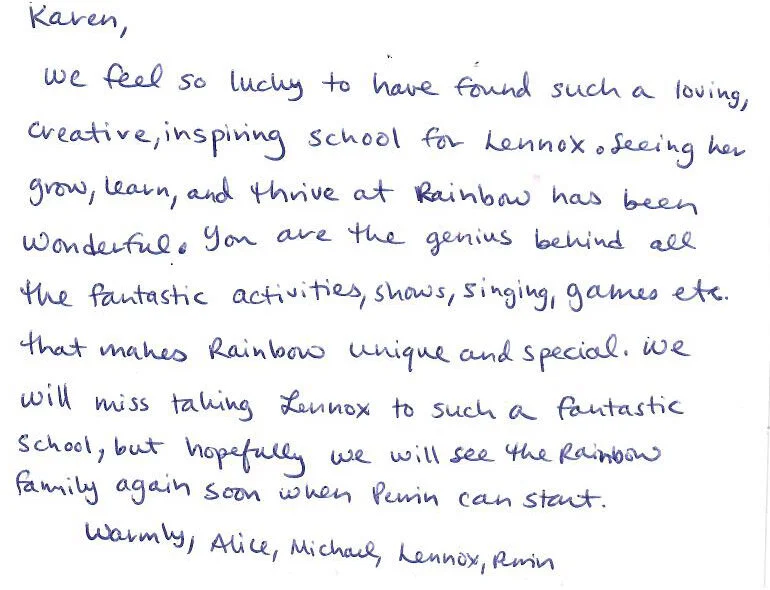 Karen,
We feel so lucky to have found such a loving,
creative, inspiring school for Lennox. Seeing her
grow, learn, and thrive at Rainbow has been
wonderful. You are the genius behind all
the fantastic activities, shows, singing, games etc.
that makes Rainbow unique and special. We
will miss taking Lennox to such a fantastic
school, but hopefully we will see the Rainbow
family again soon when Perrin can start.
Warmly, Alice, Michael, Lennox, Perrin